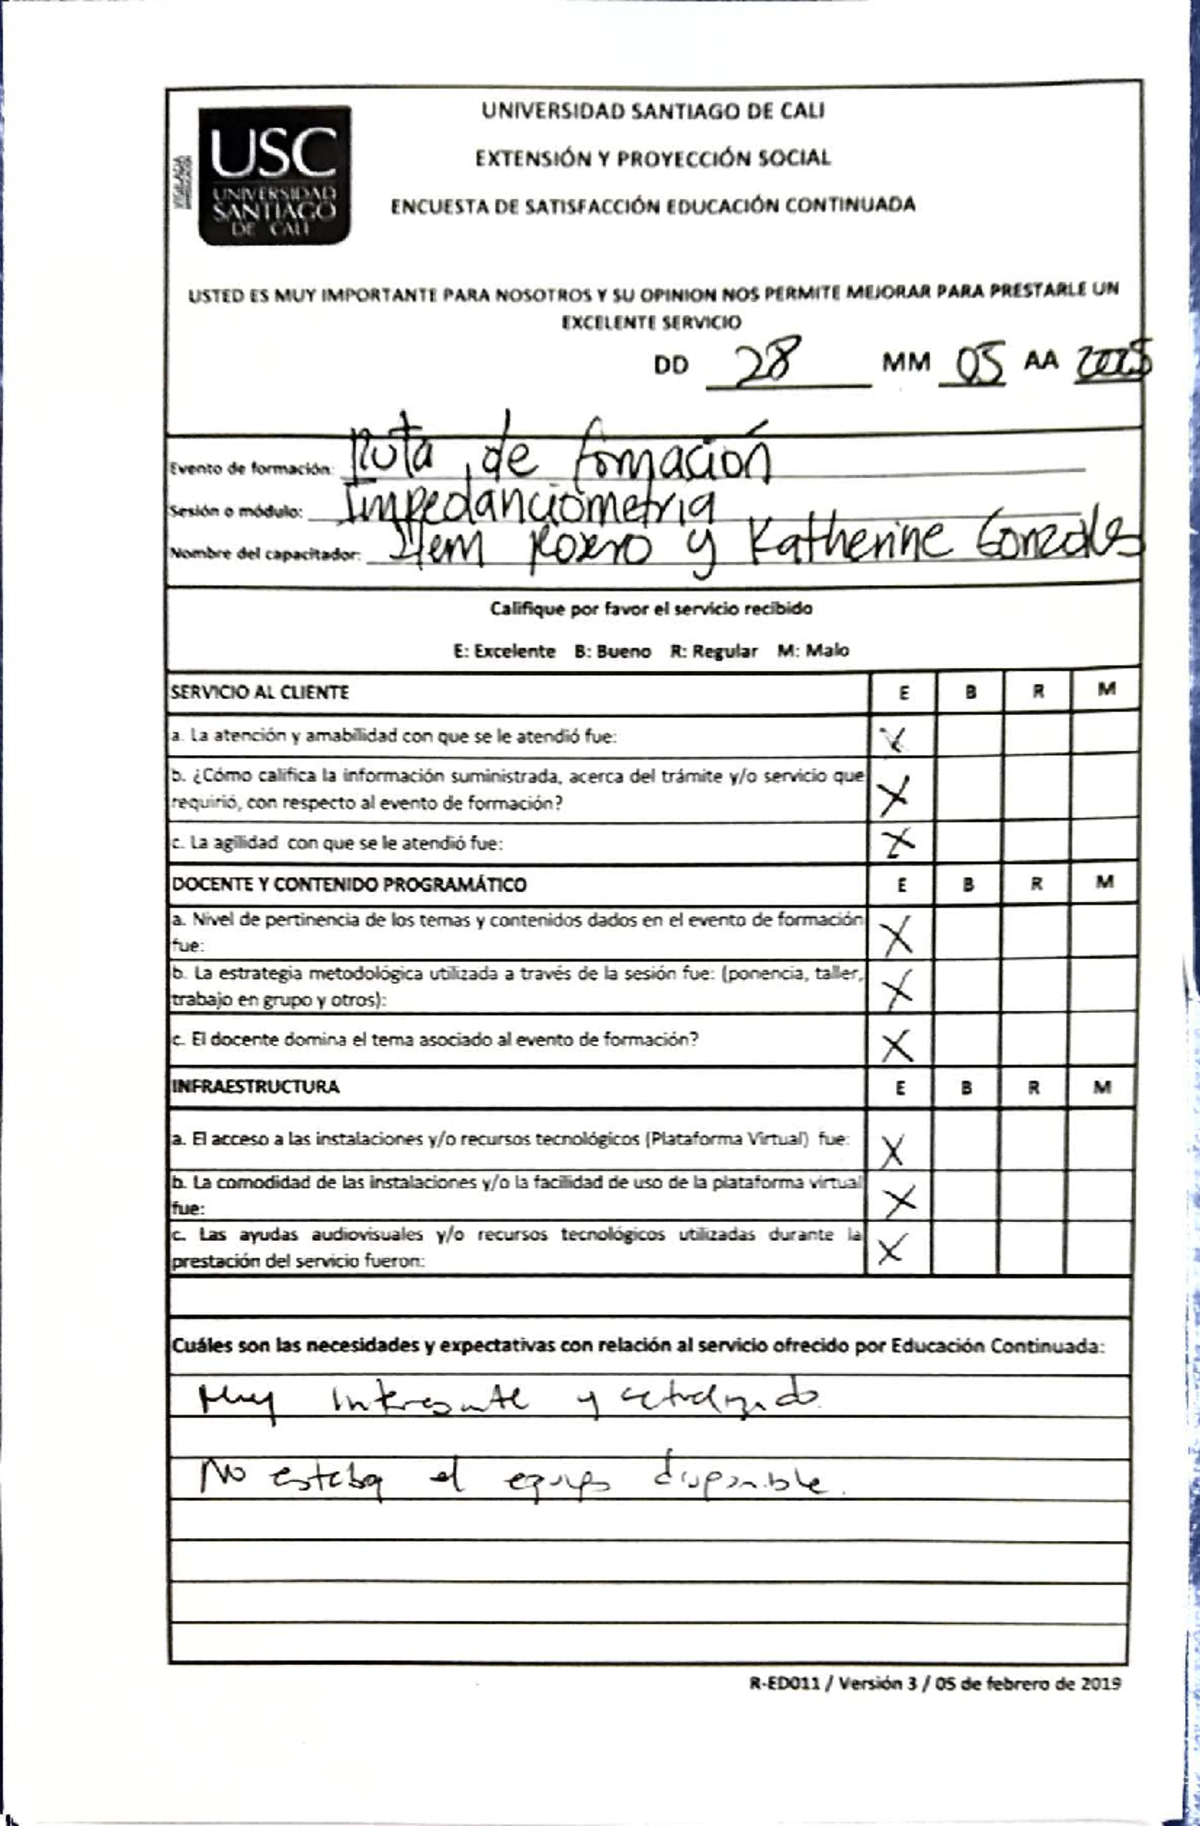 USC
UNIVERSIDAD
SANTIAGO
DE CALI
UNIVERSIDAD SANTIAGO DE CALI
EXTENSIÓN Y PROYECCIÓN SOCIAL
ENCUESTA DE SATISFACCIÓN EDUCACIÓN CONTINUADA
USTED ES MUY IMPORTANTE PARA NOSOTROS Y SU OPINION NOS PERMITE MEJORAR PARA PRESTARLE UN
EXCELENTE SERVICIO
DD 28 MM 05 AA 2025
Evento de formación: Ruta de formación
Sesión o módulo: Impedanciometria
Nombre del capacitador: Rosero y Katherine Gonzales
Califique por favor el servicio recibido
E: Excelente B: Bueno R: Regular M: Malo
SERVICIO AL CLIENTE E B R M
a. La atención y amabilidad con que se le atendió fue: X
b. ¿Cómo califica la información suministrada, acerca del trámite y/o servicio que
requirió, con respecto al evento de formación? X
c. La agilidad con que se le atendió fue: X
DOCENTE Y CONTENIDO PROGRAMÁTICO E B R M
a. Nivel de pertinencia de los temas y contenidos dados en el evento de formación
fue: X
b. La estrategia metodológica utilizada a través de la sesión fue: (ponencia, taller,
trabajo en grupo y otros): X
c. El docente domina el tema asociado al evento de formación? X
INFRAESTRUCTURA E B R M
a. El acceso a las instalaciones y/o recursos tecnológicos (Plataforma Virtual) fue: X
b. La comodidad de las instalaciones y/o la facilidad de uso de la plataforma virtual
fue: X
c. Las ayudas audiovisuales y/o recursos tecnológicos utilizadas durante la
prestación del servicio fueron: X
Cuáles son las necesidades y expectativas con relación al servicio ofrecido por Educación Continuada:
Muy interesante y
No estaba el equipo disponible.
R-ED011 / Versión 3 / 05 de febrero de 2019